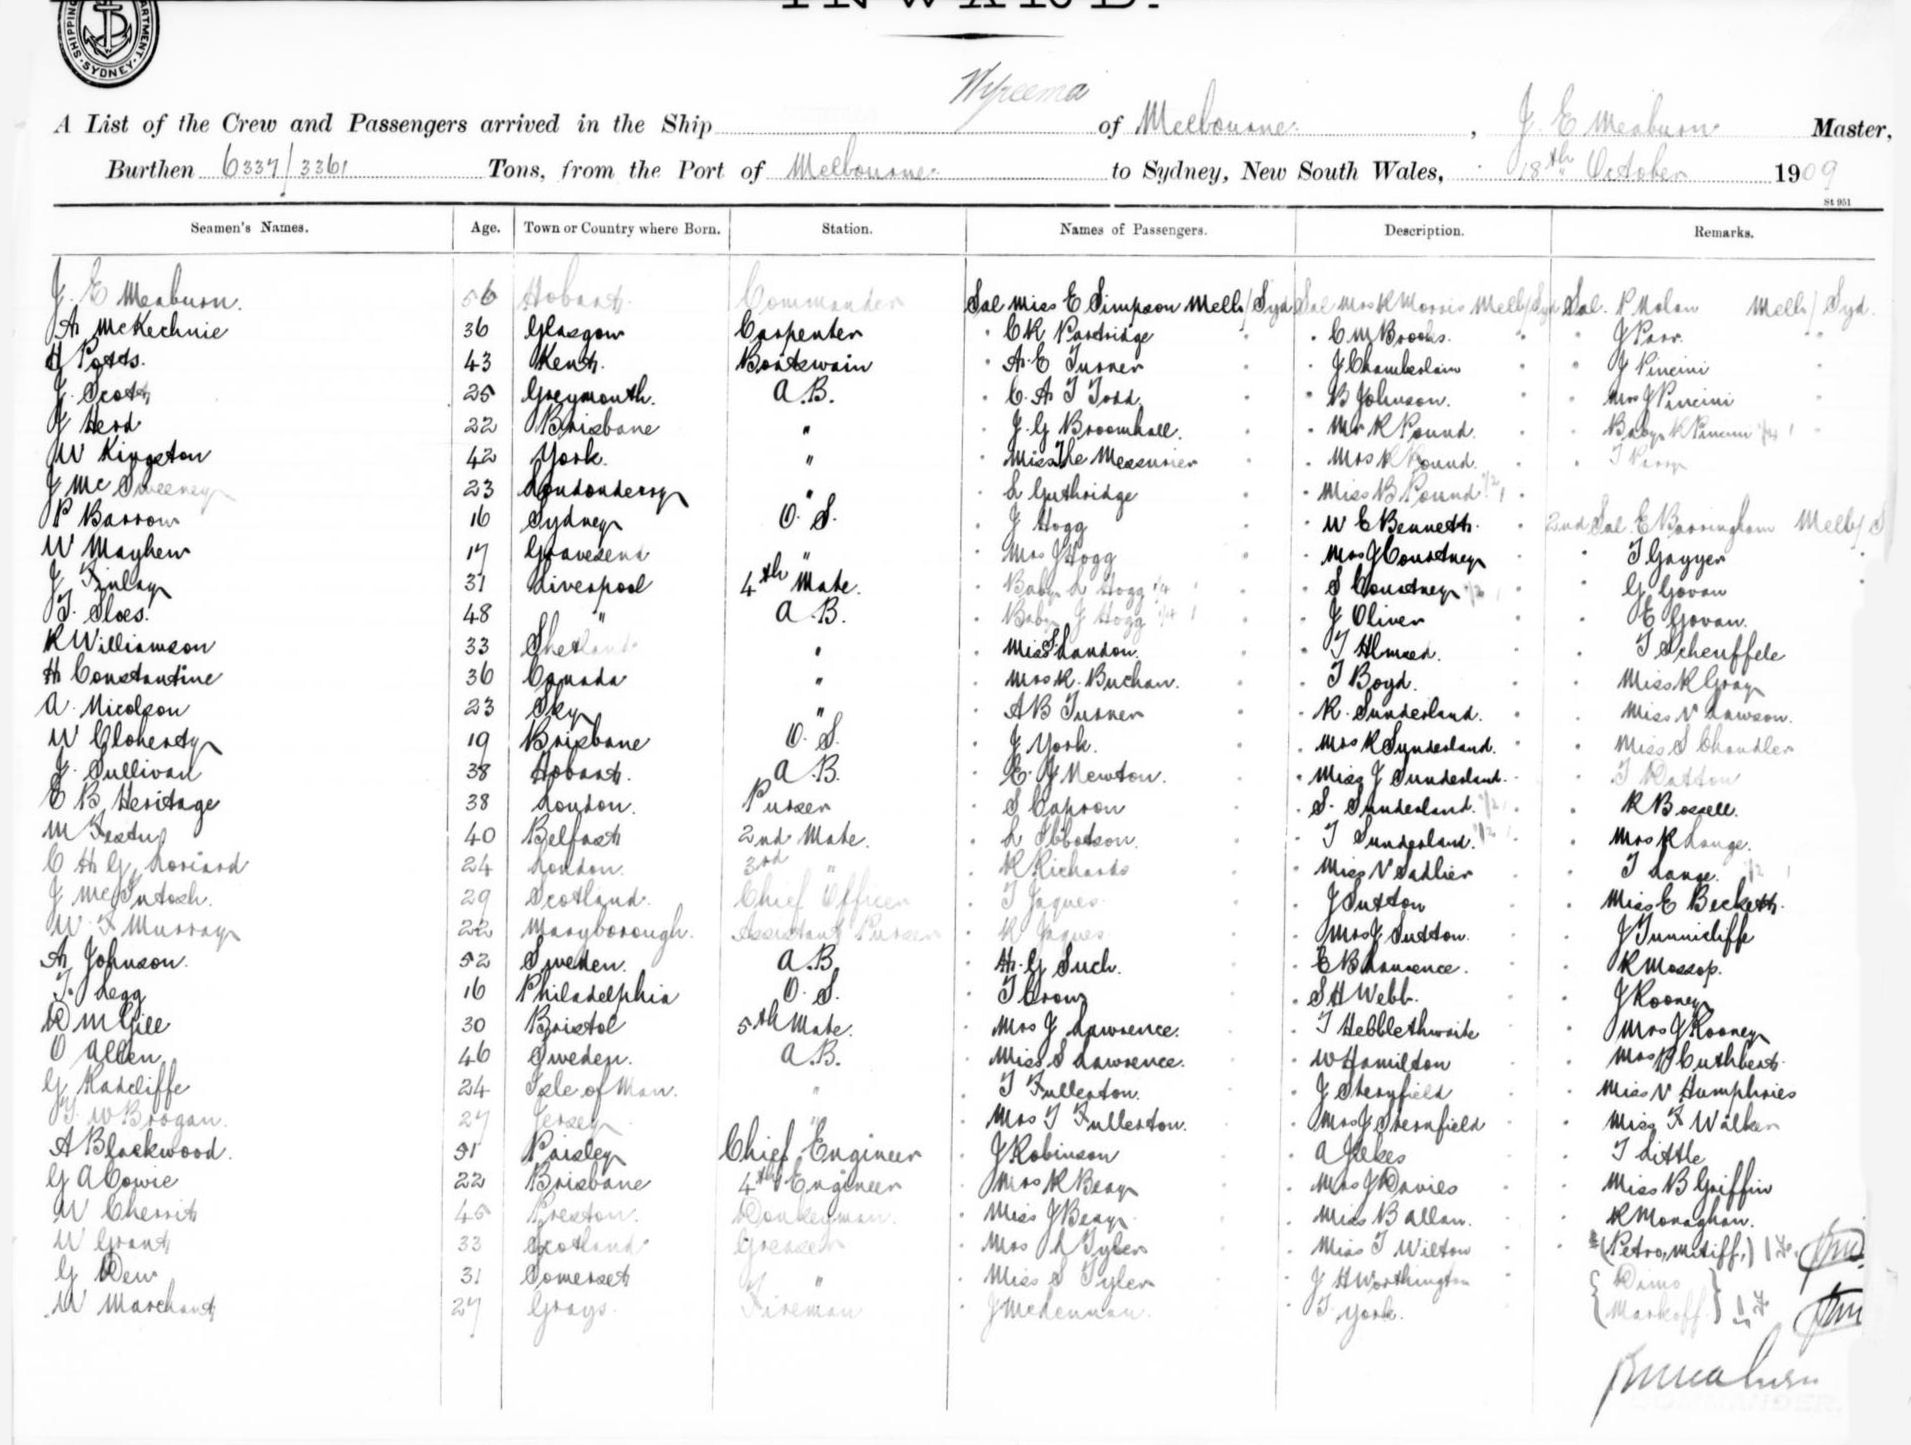 SHIPPING DEPARTMENT. SYDNEY.
INWARD.
A List of the Crew and Passengers arrived in the Ship Wyreema of Melbourne, J. E Meaburn Master,
Burthen 6337/3361 Tons, from the Port of Melbourne to Sydney, New South Wales, 18th October 1909
St 951
Seamen's Names. Age. Town or Country where Born. Station. Names of Passengers. Description. Remarks.
J. E Meaburn. 56 Hobart. Commander Sal Miss E Simpson Melb/Syd Sal Mrs K Morris Melb/Syd Sal. P Nolan Melb/Syd.
A McKechnie 36 Glasgow Carpenter " C K Partridge " " C M Brooks. " " J Parr. "
H Potts. 43 Kent. Boatswain " A. E Turner " " J Chamberlain " " J Pincini "
J. Scott 25 Greymouth. A.B. " C. A. T Todd " " B Johnson. " " Mrs J Pincini "
J Herd 22 Brisbane " " J. G Broomhall. " " Mr R Pound. " " Baby K Pincini 1/4 "
W Kingston 42 York. " " Miss " " Mrs R Pound. " " T
J McSweeney 23 Londonderry " " L Guthridge " " Miss B Pound 1/2 "
P Barrow 16 Sydney O. S. " J Hogg " " W E Bennett. " 2nd Sal. E Barringham Melb/S
W Mayhew 17 Gravesend " " Mrs J Hogg " " Mrs J Courtney " " T Gayyer "
J Finlay 31 Liverpool 4th Mate. " Baby L Hogg 1/4 " " S Courtney 1/2 " " G. Govan "
T. Sloes. 48 " A.B. " Baby J Hogg 1/4 " " J Oliver " " E Govan.
R Williamson 33 Shetland. " " Miss S Landon. " " T Almeed. " " T Scheuffele
H Constantine 36 Canada " " Mrs K. Buchan. " " T Boyd. " " Miss K Gray
A. Nicolson 23 Sky " " A B Turner " " R. Sunderland. " " Miss V Lawson.
W Cloherty 19 Brisbane O. S. " J York. " " Mrs R Sunderland. " " Miss S Chandler
J. Sullivan 38 Hobart. A.B. " E. J Newton. " " Miss J Sunderland. " " T Datton
E B Heritage 38 London. Purser " S Capron " " S. Sunderland. 1/2 " " R Bossell.
M 40 Belfast 2nd Mate. " L Ibbotson. " " T Sunderland. 1/2 " " Mrs K Lange.
C H G Loriard 24 London. 3rd " " K Richards " " Miss V Sadlier " " T Lange. 1/2
J McIntosh. 29 Scotland. Chief Officer " T Jaques " " J Sutton " " Miss E Beckett.
W. F Murray 22 Maryborough. Assistant Purser " K Jaques " " Mrs J Sutton. " " J Tunnicliffe
A Johnson. 52 Sweden. A.B. " H. G Such. " " E B Laurence. " " R Mossop.
T. Legg 16 Philadelphia O. S. " T Crow " " S H Webb. " " J Rooney
D McGill 30 Bristol 5th Mate. " Mrs J Lawrence. " " T Hebblethwaite " " Mrs J Rooney
O Allen 46 Sweden. A.B. " Miss S Lawrence. " " W Hamilton " " Mrs B Cuthbert.
G Radcliffe 24 Isle of Man. " " T Fullerton. " " J Sternfield " " Miss V Humphries
T. W Brogan. 27 Jersey " " Mrs T Fullerton. " " Mrs J Sternfield " " Miss F Walker
A Blackwood. 51 Paisley Chief Engineer " J Robinson " " A Jelkes " " T Little
G A Cowie 22 Brisbane 4th Engineer " Mrs K Beay " " Mrs J Davies " " Miss B Griffin
W Cherrit 45 Preston. Donkeyman. " Miss J Beay " " Miss B Allan. " " R Monaghan.
W Grant 33 Scotland. Greaser " Mrs L Tyler " " Miss T Wilton " " (Petro Mitiff,)
G Dew 31 Somerset " " Miss S Tyler " " J H Worthington " { Dimo
W Marchant 27 Grays. Fireman " J McLennan. " " T. York. Markoff }
J E Meaburn
COMMANDER.